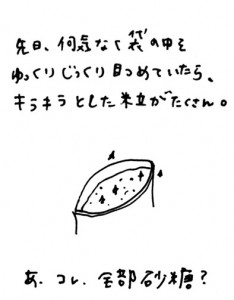 先日、何気なく袋の中を
ゆっくりじっくり見つめていたら、
キラキラとした粒がたくさん。
あ、コレ、全部砂糖?